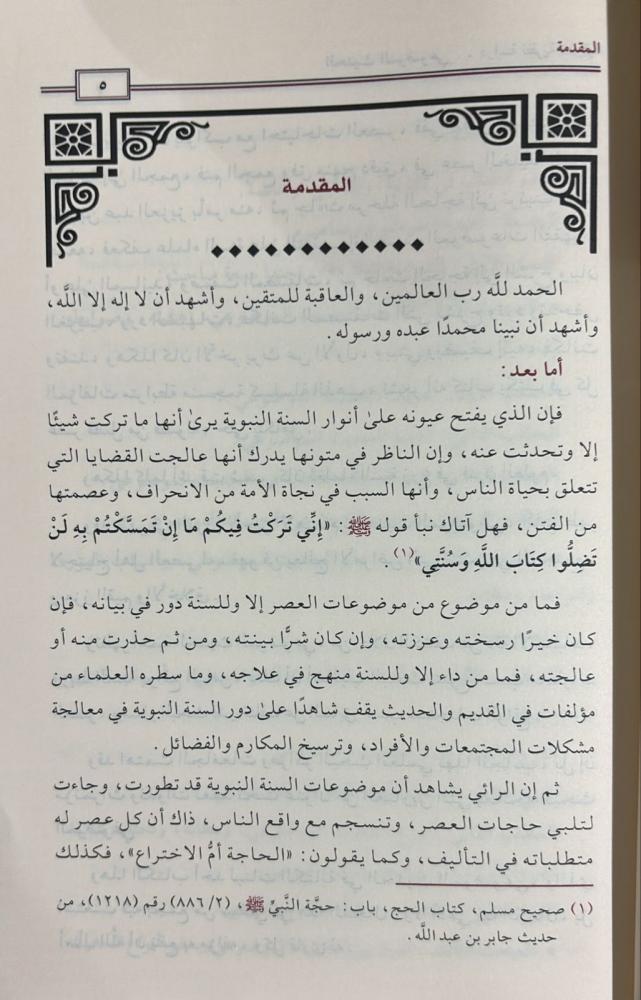 المقدمة
٥
المقدمة
الحمد للَّه رب العالمين، والعاقبة للمتقين، وأشهد أن لا إله إلا اللَّه،
وأشهد أن نبينا محمدًا عبده ورسوله.
أما بعد:
فإن الذي يفتح عيونه علىٰ أنوار السنة النبوية يرىٰ أنها ما تركت شيئًا
إلا وتحدثت عنه، وإن الناظر في متونها يدرك أنها عالجت القضايا التي
تتعلق بحياة الناس، وأنها السبب في نجاة الأمة من الانحراف، وعصمتها
من الفتن، فهل آتاك نبأ قوله ﷺ: «إِنِّي تَرَكْتُ فِيكُمْ مَا إِنْ تَمَسَّكْتُمْ بِهِ لَنْ
تَضِلُّوا كِتَابَ اللَّهِ وَسُنَّتِي»(١).
فما من موضوع من موضوعات العصر إلا وللسنة دور في بيانه، فإن
كان خيرًا رسخته وعززته، وإن كان شرًّا بينته، ومن ثم حذرت منه أو
عالجته، فما من داء إلا وللسنة منهج في علاجه، وما سطره العلماء من
مؤلفات في القديم والحديث يقف شاهدًا علىٰ دور السنة النبوية في معالجة
مشكلات المجتمعات والأفراد، وترسيخ المكارم والفضائل.
ثم إن الرائي يشاهد أن موضوعات السنة النبوية قد تطورت، وجاءت
لتلبي حاجات العصر، وتنسجم مع واقع الناس، ذاك أن كل عصر له
متطلباته في التأليف، وكما يقولون: «الحاجة أمُّ الاختراع»، فكذلك
(١) صحيح مسلم، كتاب الحج، باب: حجَّة النَّبيِّ ﷺ، (٢/ ٨٨٦) رقم (١٢١٨)، من
حديث جابر بن عبد اللَّه.